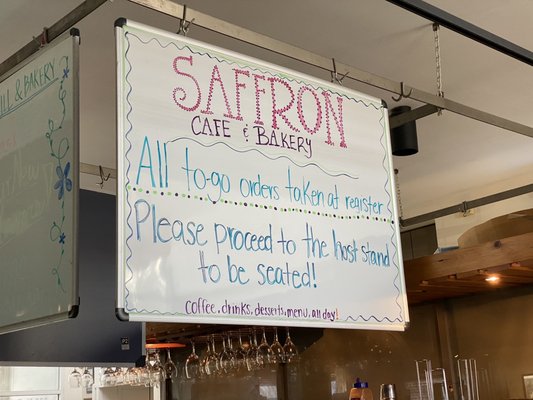 ILL & BAKERY
SAFFRON
CAFE & BAKERY
All to-go orders taken at register
Please proceed to the host stand
to be seated!
coffee, drinks, desserts, menu, all day!
P2